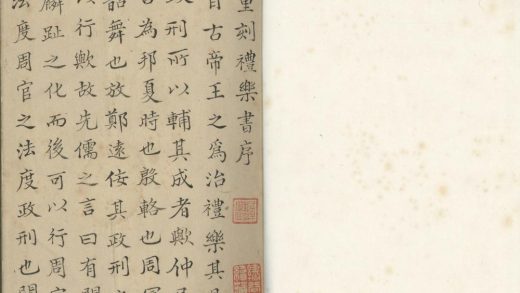 重刻禮樂書序
自古帝王之爲治禮樂其
政刑所以輔其成者歟仲
爲邦夏時也殷輅也周冕
韶舞也放鄭遠佞其政刑
以行歟故先儒之言曰有關
麟趾之化而後可以行周官
法度周官之法度政刑也關